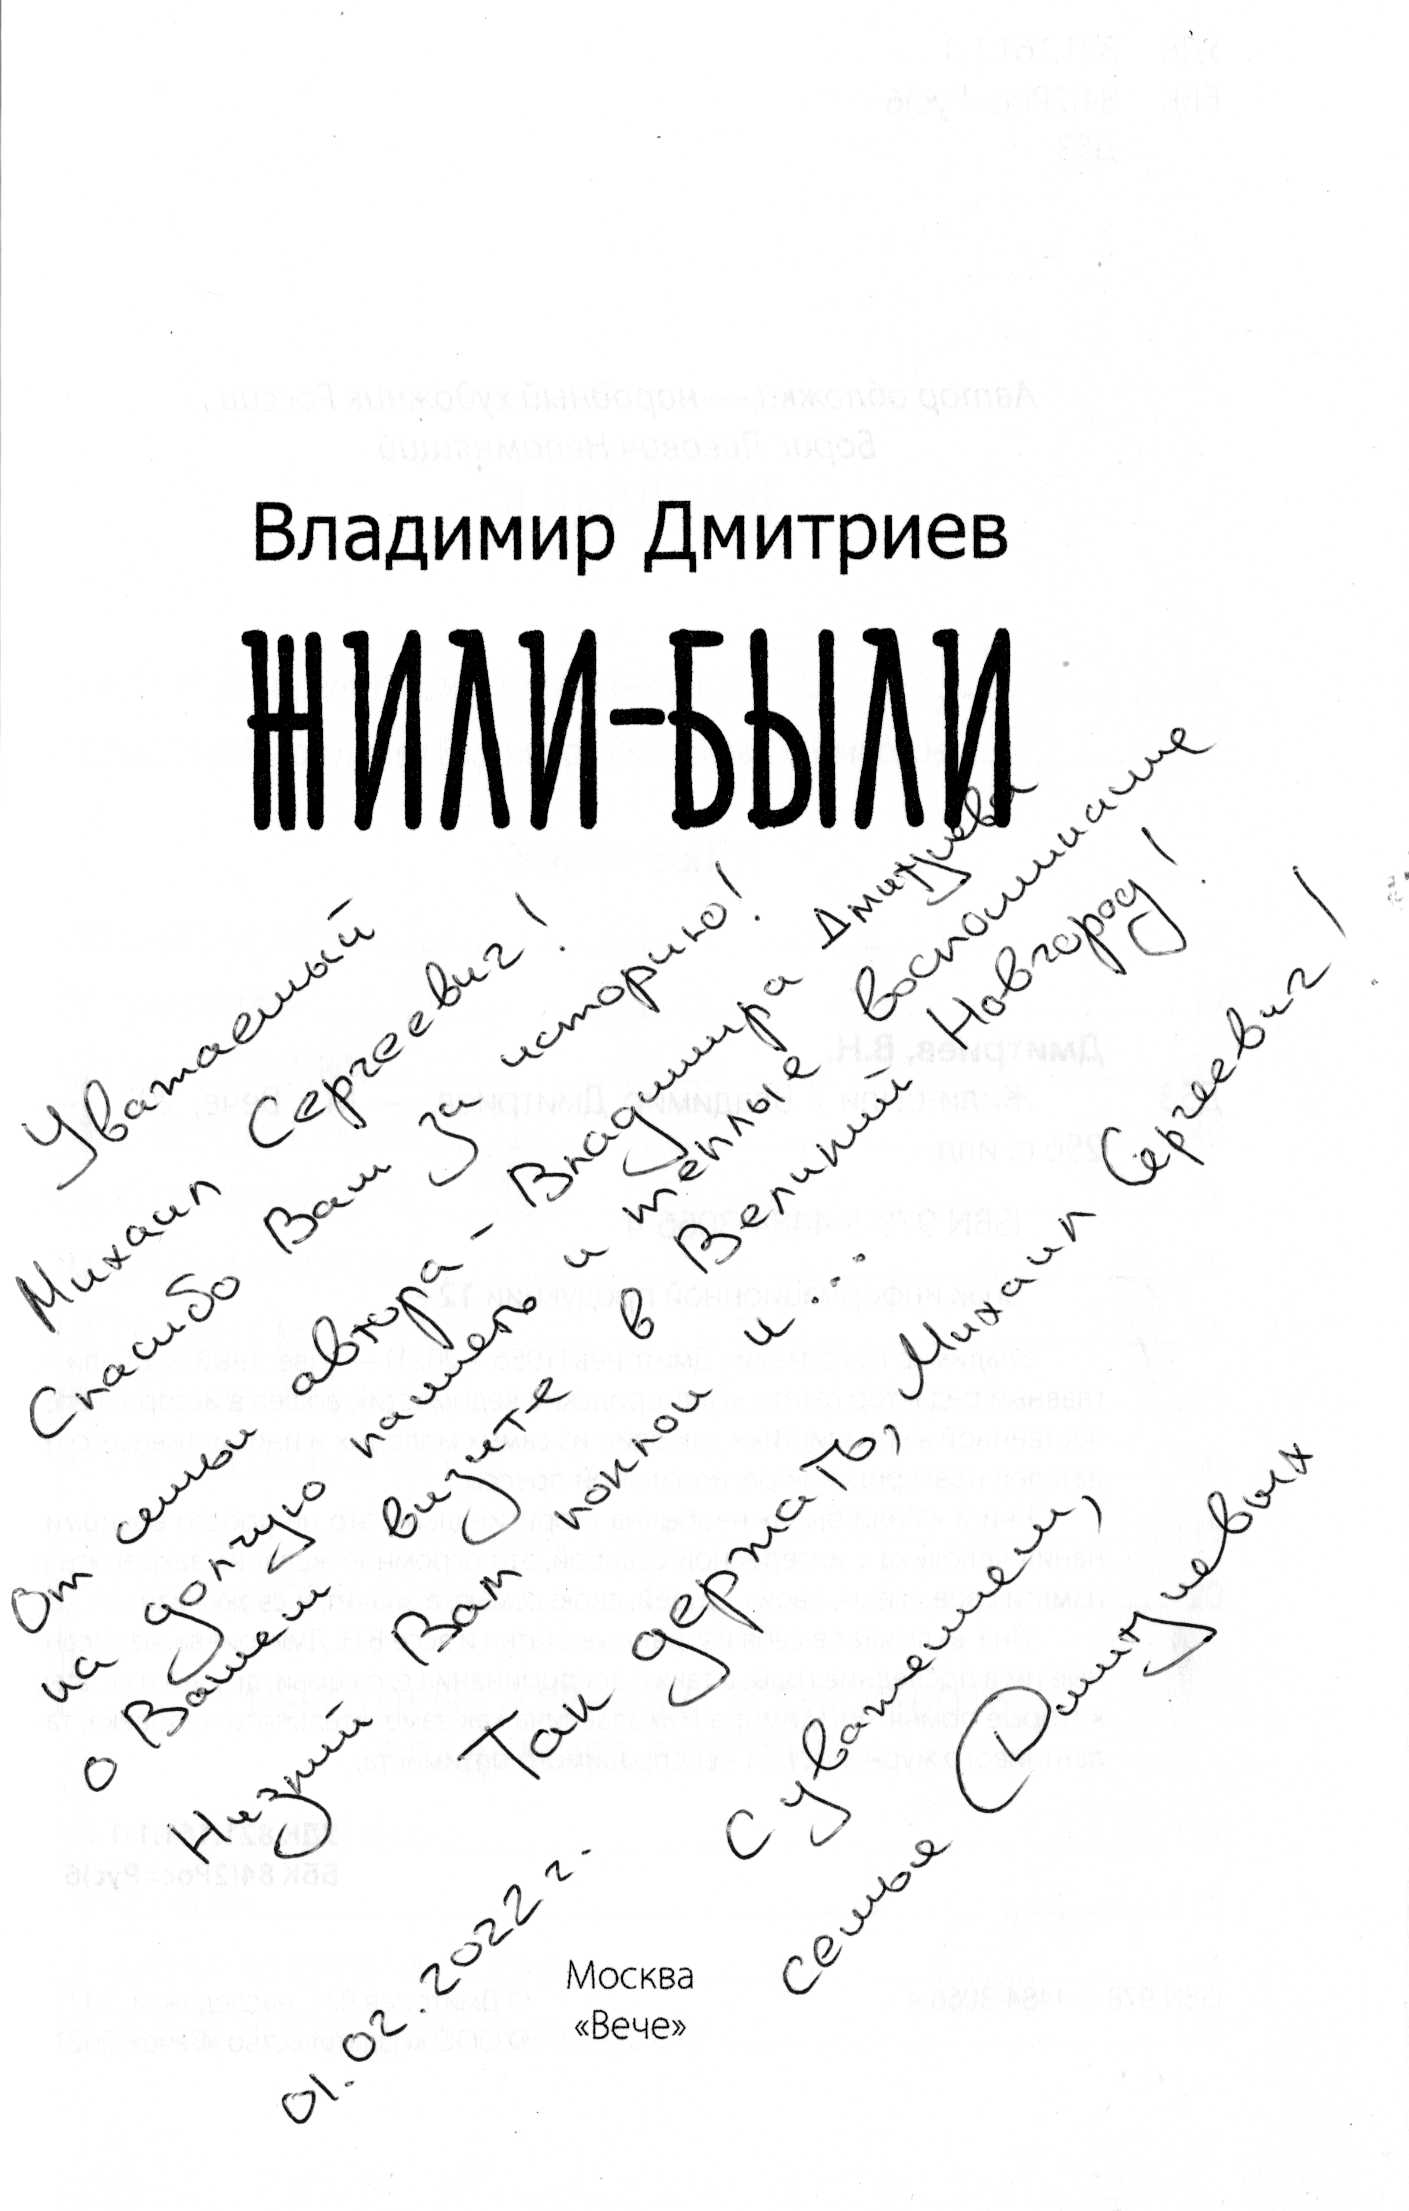 Владимир Дмитриев
ЖИЛИ-БЫЛИ
Уважаемый
Михаил Сергеевич!
Спасибо Вам за историю!
От семьи автора - Владимира Дмитриева
на долгую память и теплые воспоминание
о Вашем визите в Великий Новгород!
Низкий Вам поклон и...
Так держать, Михаил Сергеевич!
С уважением,
семья Дмитриевых
01.02.2022 г.
Москва
«Вече»